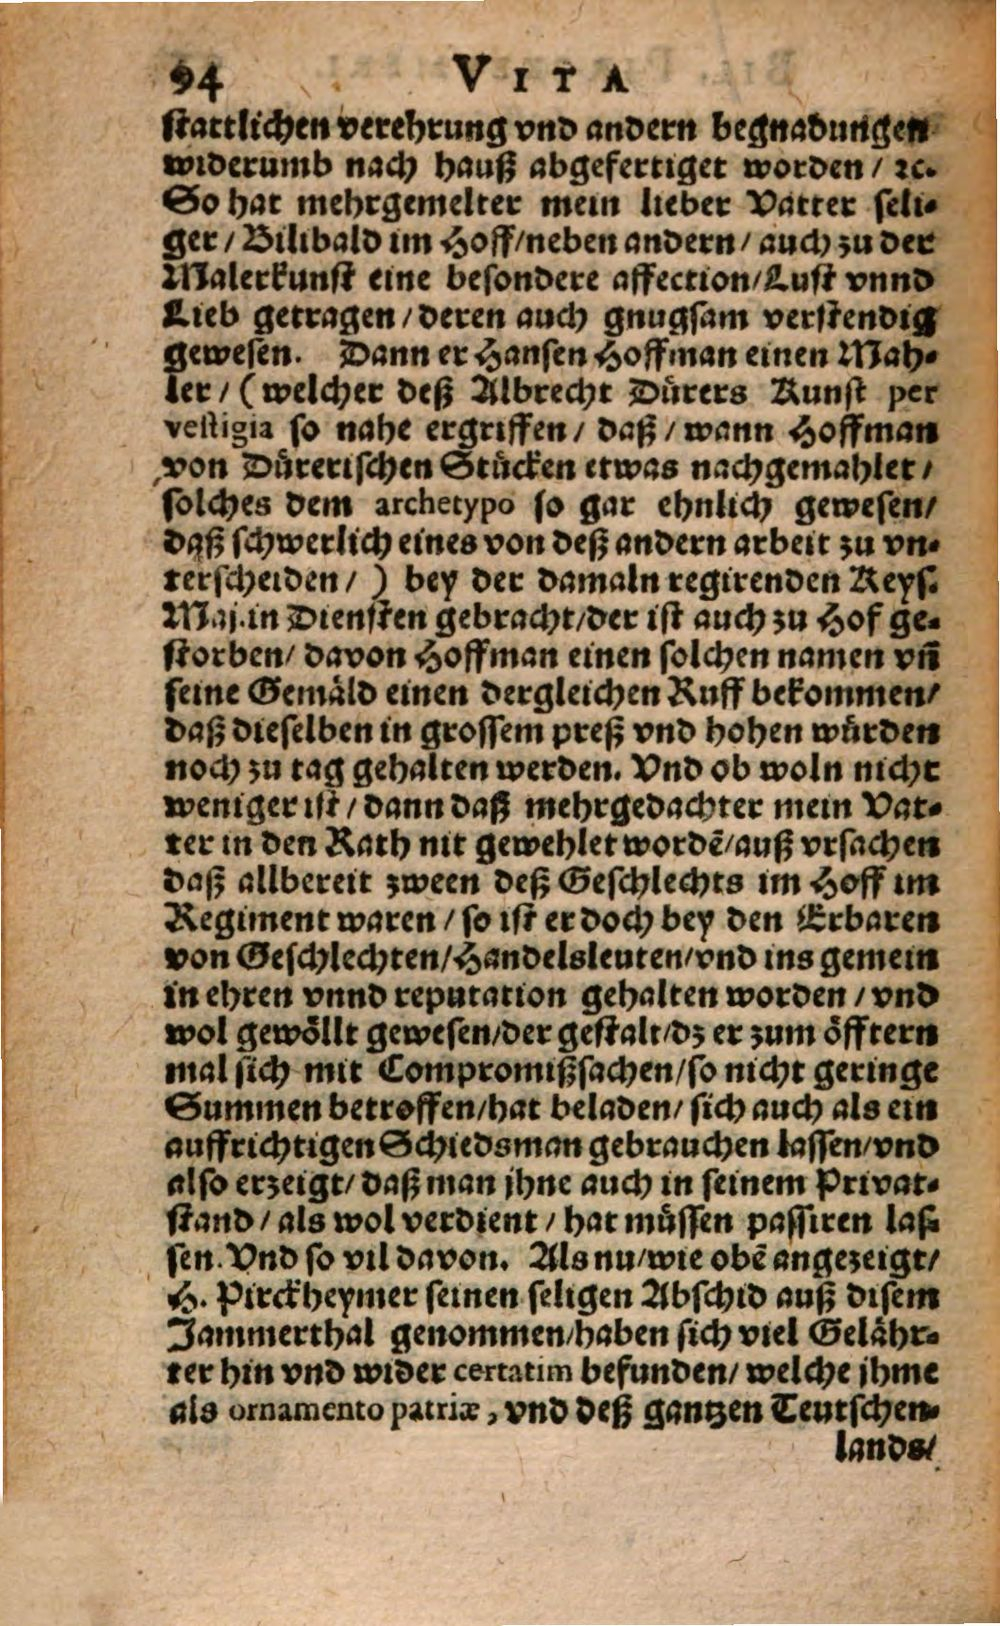 94 VITA
stattlichen verehrung vnd andern begnadungen
widerumb nach hauß abgefertiget worden / ꝛc.
So hat mehrgemelter mein lieber Vatter seli-
ger / Bilibald im Hoff / neben andern / auch zu der
Malerkunst eine besondere affection / Lust vnnd
Lieb getragen / deren auch gnugsam verstendig
gewesen. Dann er Hansen Hoffman einen Mah-
ler / (welcher deß Albrecht Dürers Kunst per
vestigia so nahe ergriffen / daß / wann Hoffman
von Dürerischen Stücken etwas nachgemahlet /
solches dem archetypo so gar ehnlich gewesen /
daß schwerlich eines von deß andern arbeit zu vn-
terscheiden / ) bey der damaln regirenden Keys.
Maj. in Diensten gebracht / der ist auch zu Hof ge-
storben / davon Hoffman einen solchen namen vñ
seine Gemäld einen dergleichen Ruff bekommen /
daß dieselben in grossem preß vnd hohen würden
noch zu tag gehalten werden. Vnd ob woln nicht
weniger ist / dann daß mehrgedachter mein Vat-
ter in den Rath nit gewehlet wordẽ / auß vrsachen
daß allbereit zween deß Geschlechts im Hoff im
Regiment waren / so ist er doch bey den Erbaren
von Geschlechten / Handelsleuten / vnd ins gemein
in ehren vnnd reputation gehalten worden / vnd
wol gewöllt gewesen / der gestalt / dz er zum öfftern
mal sich mit Compromißsachen / so nicht geringe
Summen betroffen / hat beladen / sich auch als ein
auffrichtigen Schiedsman gebrauchen lassen / vnd
also erzeigt / daß man jhne auch in seinem Privat-
stand / als wol verdient / hat müssen passiren las-
sen. Vnd so vil davon. Als nu / wie obẽ angezeigt /
H. Pirckheymer seinen seligen Abschid auß disem
Jammerthal genommen / haben sich viel Gelähr-
ter hin vnd wider certatim befunden / welche jhme
als ornamento patriæ, vnd deß gantzen Teutschen-
lands /